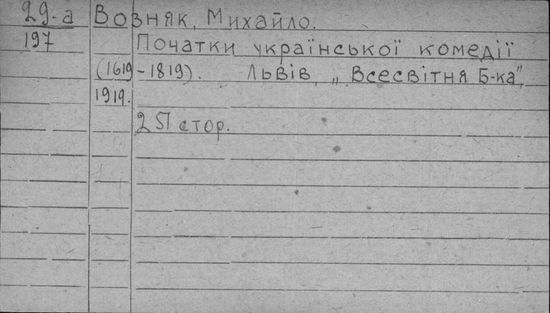 29-а Возняк, Михайло.
197 Початки української комедії
(1619-1819). Львів, „Всесвітня Б-ка",
1919.
251 стор.